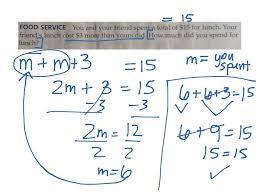 = 15
FOOD SERVICE You and your friend spent a total of $15 for lunch. Your
friend's lunch cost $3 more than yours did. How much did you spend for
lunch?
m + m + 3 = 15
2m + 3 = 15
-3 -3
2m = 12
2 2
m = 6
m = you
spent
6 + 6 + 3 = 15
6 + 9 = 15
15 = 15